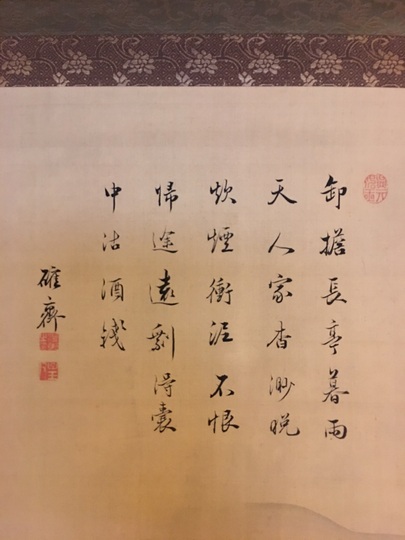 卸擔長亭暮雨
天人家杳渺晩
炊煙衝泥不恨
帰途遠剩得囊
中沽酒錢
確齋